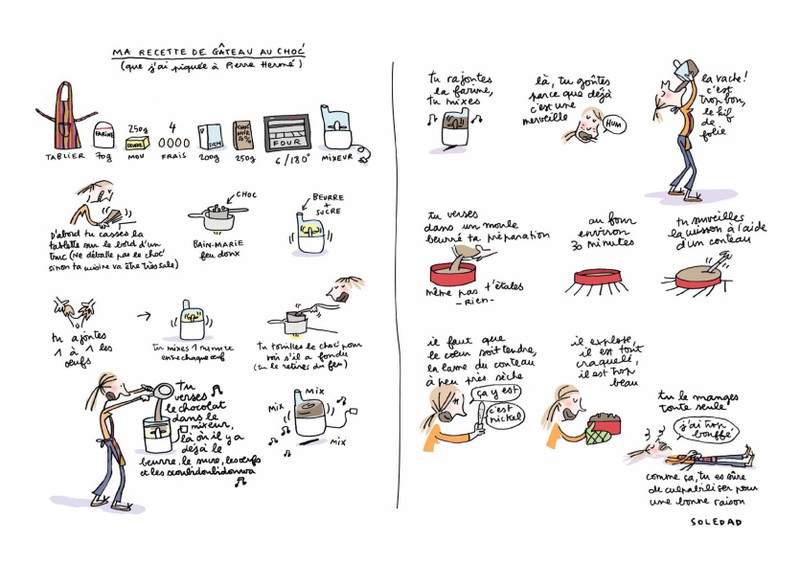 MA RECETTE DE GÂTEAU AU CHOC'
(que j'ai piquée à Pierre Hermé)
TABLIER
FARINE
70g
250g
BEURRE
MOU
4
FRAIS
200g
250g
FOUR
6/180°
MIXEUR
D'abord tu casses la
tablette sur le bord d'un
truc (Ne déballe pas le choc'
sinon ta cuisine va être très sale)
CHOC
BAIN-MARIE
feu doux
BEURRE
+
SUCRE
tu ajoutes
1 à 1 les
oeufs
Tu mixes 1 minute
entre chaque oeuf
Tu touilles le choc' pour
voir s'il a fondu
(tu le retires du feu)
tu
verses
le chocolat
dans le
mixeur,
là où il y a
déjà le
beurre, le sucre, les oeufs
et les scoubidoubidouwa
MIX
MIX
MIX
tu rajoutes
la farine,
tu mixes
là, tu goûtes
parce que déjà
c'est une
merveille
HUM
la vache!
c'est
trop bon,
le kif
de
folie
tu verses
dans un moule
beurré ta préparation
même pas t'étales
-rien-
au four
environ
30 minutes
tu surveilles
la cuisson à l'aide
d'un couteau
il faut que
le coeur soit tendre,
la lame du couteau
à peu près sèche
ça y est
c'est
nickel
il explose,
il est tout
craquelé,
il est trop
beau
tu le manges
toute seule
j'ai trop
bouffé
comme ça, tu es sûre
de culpabiliser pour
une bonne raison
SOLEDAD